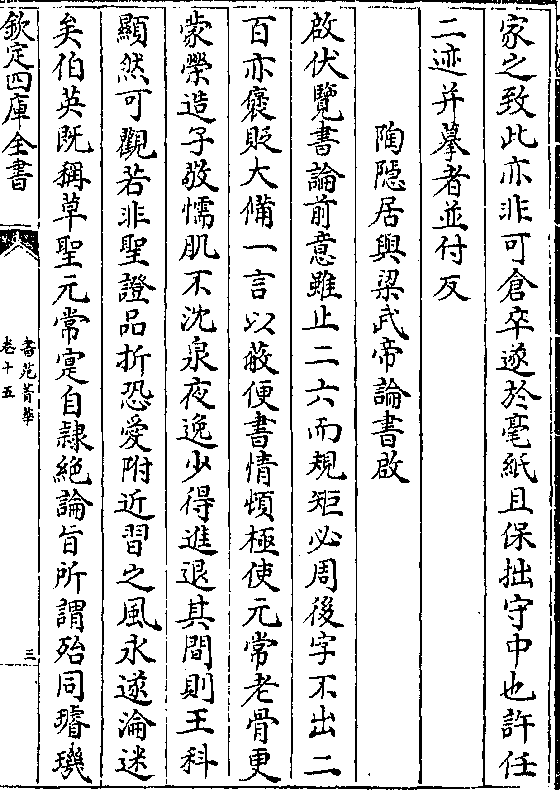 家之致此亦非可倉卒遂於毫紙且保拙守中也許任
二迹并摹者並付反
陶隠居與梁武帝論書啟
啟伏覽書論前意雖止二六而規矩必周後字不出二
百亦褒貶大備一言以蔽便書情頓極使元常老骨更
蒙榮造子敬懦肌不沈泉夜逸少得進退其間則王科
顯然可觀若非聖證品折恐愛附近習之風永遂淪迷
矣伯英既稱草聖元常寔自隷絶論旨所謂殆同璿璣
欽定四庫全書
書苑菁華
卷十五
三